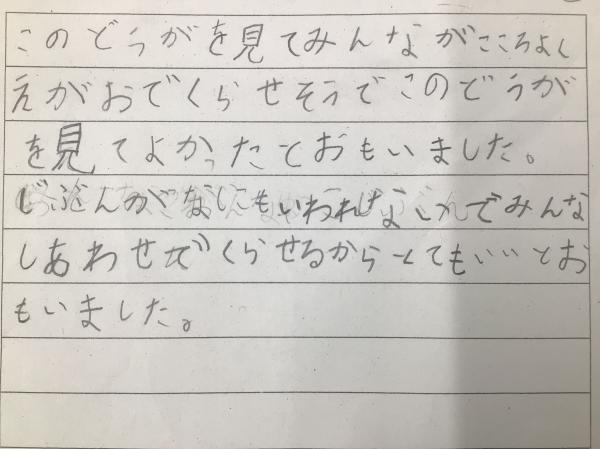 このどうがを見てみんながこころよく
えがおでくらせそうでこのどうが
を見てよかったとおもいました。
じぶんがなにもいわれないでみんな
しあわせでくらせるからとてもいいとお
もいました。